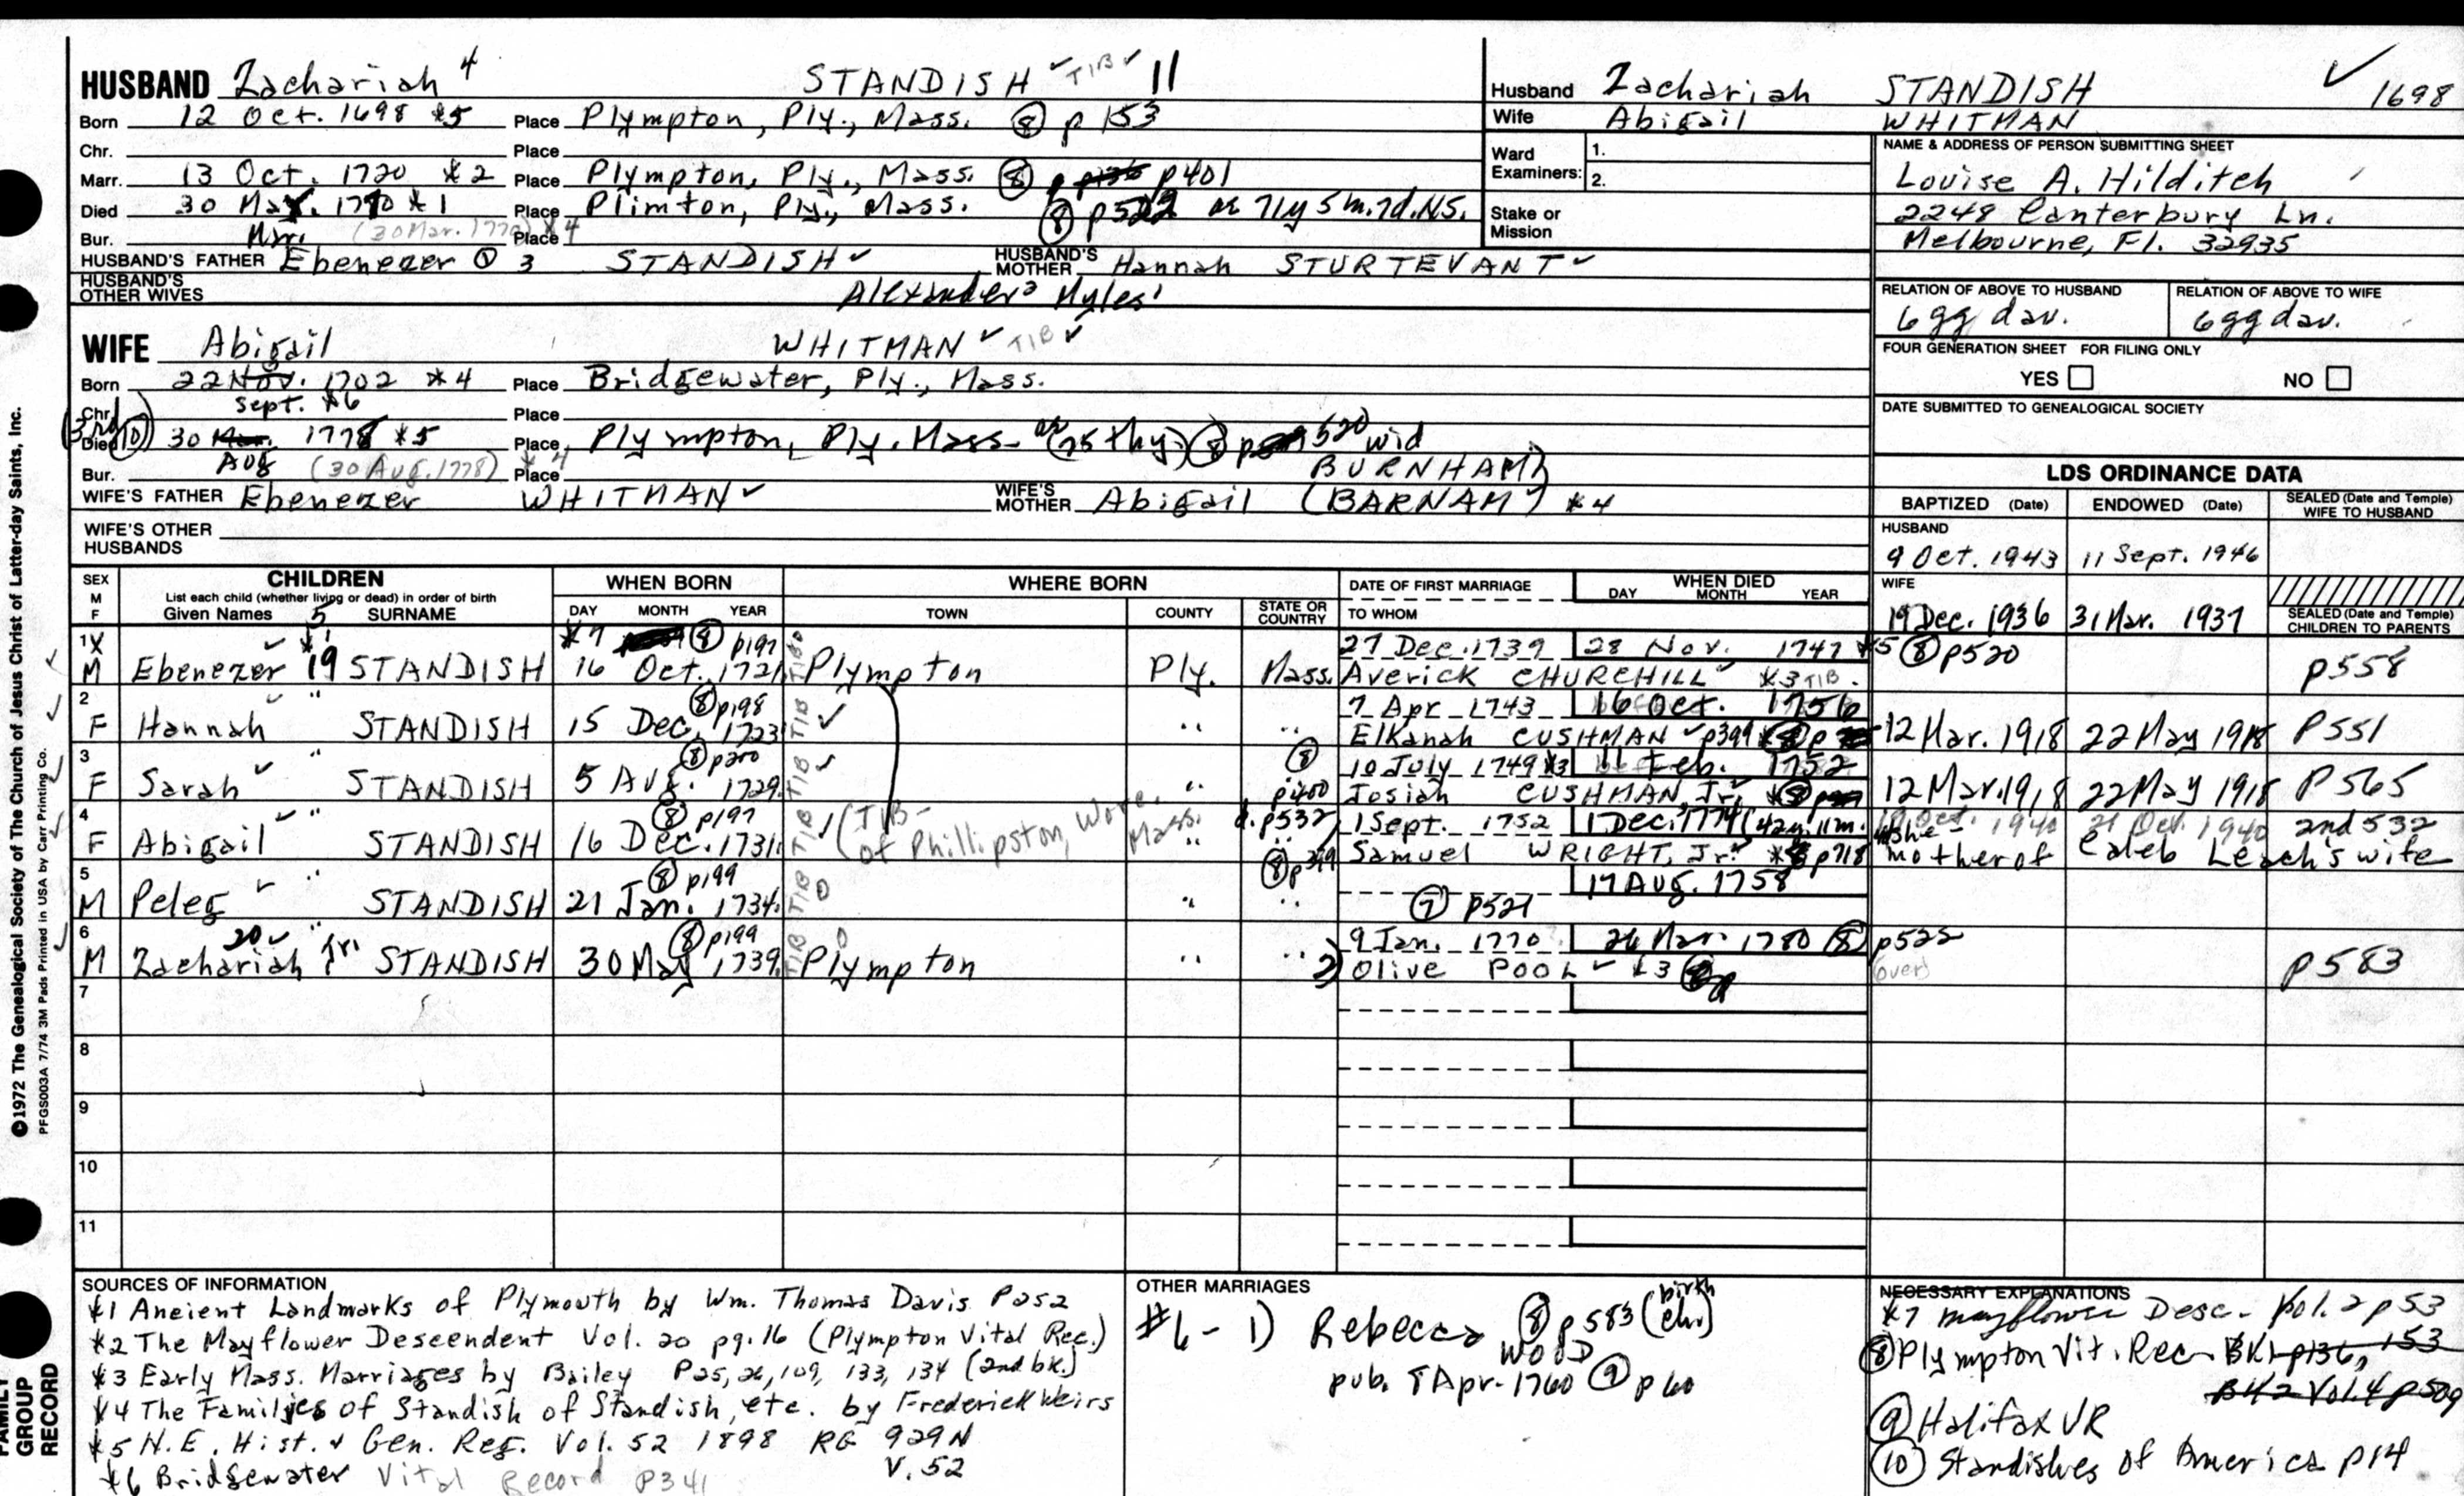 HUSBAND Zachariah 4 STANDISH ✓ TIB ✓ 11
Born 12 Oct. 1698 *5 Place Plympton, Ply., Mass. ⑧ p 153
Chr. Place
Marr. 13 Oct. 1720 *2 Place Plympton, Ply., Mass. ⑧ p p401
Died 30 1770 *1 Place Plimton, Ply., Mass. ⑧ p522 ae 71y 5m. 7d. N.S.
Bur. Mar. (30 Mar. 1770) *4 Place
HUSBAND'S FATHER Ebenezer 3 STANDISH ✓ HUSBAND'S MOTHER Hannah STURTEVANT ✓
HUSBAND'S OTHER WIVES Alexander² Myles¹
WIFE Abigail WHITMAN ✓ TIB ✓
Born 22 Nov. 1702 *4 Place Bridgewater, Ply., Mass.
Sept. *6
Chr. Place
(3rd ⑩) Died 30 Mar. 1778 *5 Place Plympton, Ply. Mass. ae (75thy) ⑧ p 520 wid
Bur. Aug (30 Aug. 1778) *4 Place BURNHAM)
WIFE'S FATHER Ebenezer WHITMAN ✓ WIFE'S MOTHER Abigail (BARNAM ✓) *4
WIFE'S OTHER HUSBANDS
Husband Zachariah STANDISH ✓ 1698
Wife Abigail WHITMAN
Ward Examiners: 1.
2.
Stake or Mission
NAME & ADDRESS OF PERSON SUBMITTING SHEET
Louise A. Hilditch
2248 Canterbury Ln.
Melbourne, Fl. 32935
RELATION OF ABOVE TO HUSBAND RELATION OF ABOVE TO WIFE
6gg dau. 6gg dau.
FOUR GENERATION SHEET FOR FILING ONLY
YES NO
DATE SUBMITTED TO GENEALOGICAL SOCIETY
LDS ORDINANCE DATA
BAPTIZED (Date) ENDOWED (Date) SEALED (Date and Temple) WIFE TO HUSBAND
HUSBAND
9 Oct. 1943 11 Sept. 1946
WIFE
19 Dec. 1936 31 Mar. 1937 SEALED (Date and Temple) CHILDREN TO PARENTS
SEX M F CHILDREN WHEN BORN WHERE BORN DATE OF FIRST MARRIAGE WHEN DIED
List each child (whether living or dead) in order of birth DAY MONTH YEAR
Given Names 5 SURNAME DAY MONTH YEAR TOWN COUNTY STATE OR COUNTRY TO WHOM
1 X *1 *7 ⑧ p197 27 Dec. 1739 28 Nov. 1747 *5 ⑧ p520
M Ebenezer 19 STANDISH 16 Oct. 1721 TIB Plympton Ply. Mass. Averick CHURCHILL *3 TIB. p558
2 ⑧ p198 7 Apr 1743 16 Oct. 1756
F Hannah " STANDISH 15 Dec. 1723 TIB ✓ " " Elkanah CUSHMAN ✓ p399 12 Mar. 1918 22 May 1918 P551
3 ⑧ p200 ⑧ 10 July 1749 *3 11 Feb. 1752
F Sarah ✓ " STANDISH 5 Aug. 1729. TIB ✓ " p400 Josiah CUSHMAN, Jr. ✓ 12 Mar. 1918 22 May 1918 P565
4 ⑧ p197 (TIB- of Phillipston, Worc. Mass. d. p532 1 Sept. 1752 1 Dec. 1774 (42y. 11m. Oct. 1940 21 Oct. 1940 2nd 532
F Abigail ✓ " STANDISH 16 Dec. 1731. TIB " " Samuel WRIGHT, Jr. p718 she- mother of Caleb Leach's wife
5 ⑧ p199 ⑧ p399 17 Aug. 1758
M Peleg ✓ " STANDISH 21 Jan. 1734. TIB " " ⑦ p527
6 20 ✓ ⑧ p199 9 Jan. 1770 26 Mar. 1780 ⑧ p525
M Zachariah Jr. STANDISH 30 May 1739. TIB Plympton " " 2) Olive POOL ✓ *3 (over) p583
7
8
9
10
11
SOURCES OF INFORMATION
*1 Ancient Landmarks of Plymouth by Wm. Thomas Davis P252
*2 The Mayflower Descendent Vol. 20 pg. 16 (Plympton Vital Rec.)
*3 Early Mass. Marriages by Bailey P25, 26, 109, 133, 134 (2nd bk.)
*4 The Families of Standish of Standish, etc. by Frederick Weirs
*5 N.E. Hist. & Gen. Reg. Vol. 52 1898 RG 929N
V. 52
*6 Bridgewater Vital Record P341
OTHER MARRIAGES
#6 - 1) Rebecca WOOD ⑧ p583 (birth chr)
pub. 5 Apr. 1760 ⑨ p 60
NECESSARY EXPLANATIONS
*7 Mayflower Desc. Vol. 2 p 53
⑧ Plympton Vit. Rec. BK1 p136, 153
BK2 Vol. 4 p509
⑨ Halifax VR
⑩ Standishes of America p14
©1972 The Genealogical Society of The Church of Jesus Christ of Latter-day Saints, Inc.
PFGS003A 7/74 3M Pads Printed in USA by Carr Printing Co.
FAMILY GROUP RECORD